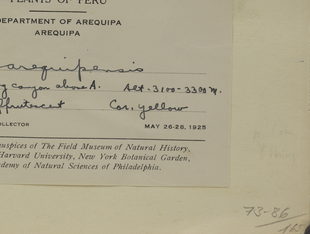 PLANTS OF PERU
DEPARTMENT OF AREQUIPA
AREQUIPA
arequipensis
canyon above A. Alt. 3100-3300 m.
ffrutescent Cor. yellow
OLLECTOR MAY 26-28, 1925
uspices of The Field Museum of Natural History,
Harvard University, New York Botanical Garden,
demy of Natural Sciences of Philadelphia.
73-86